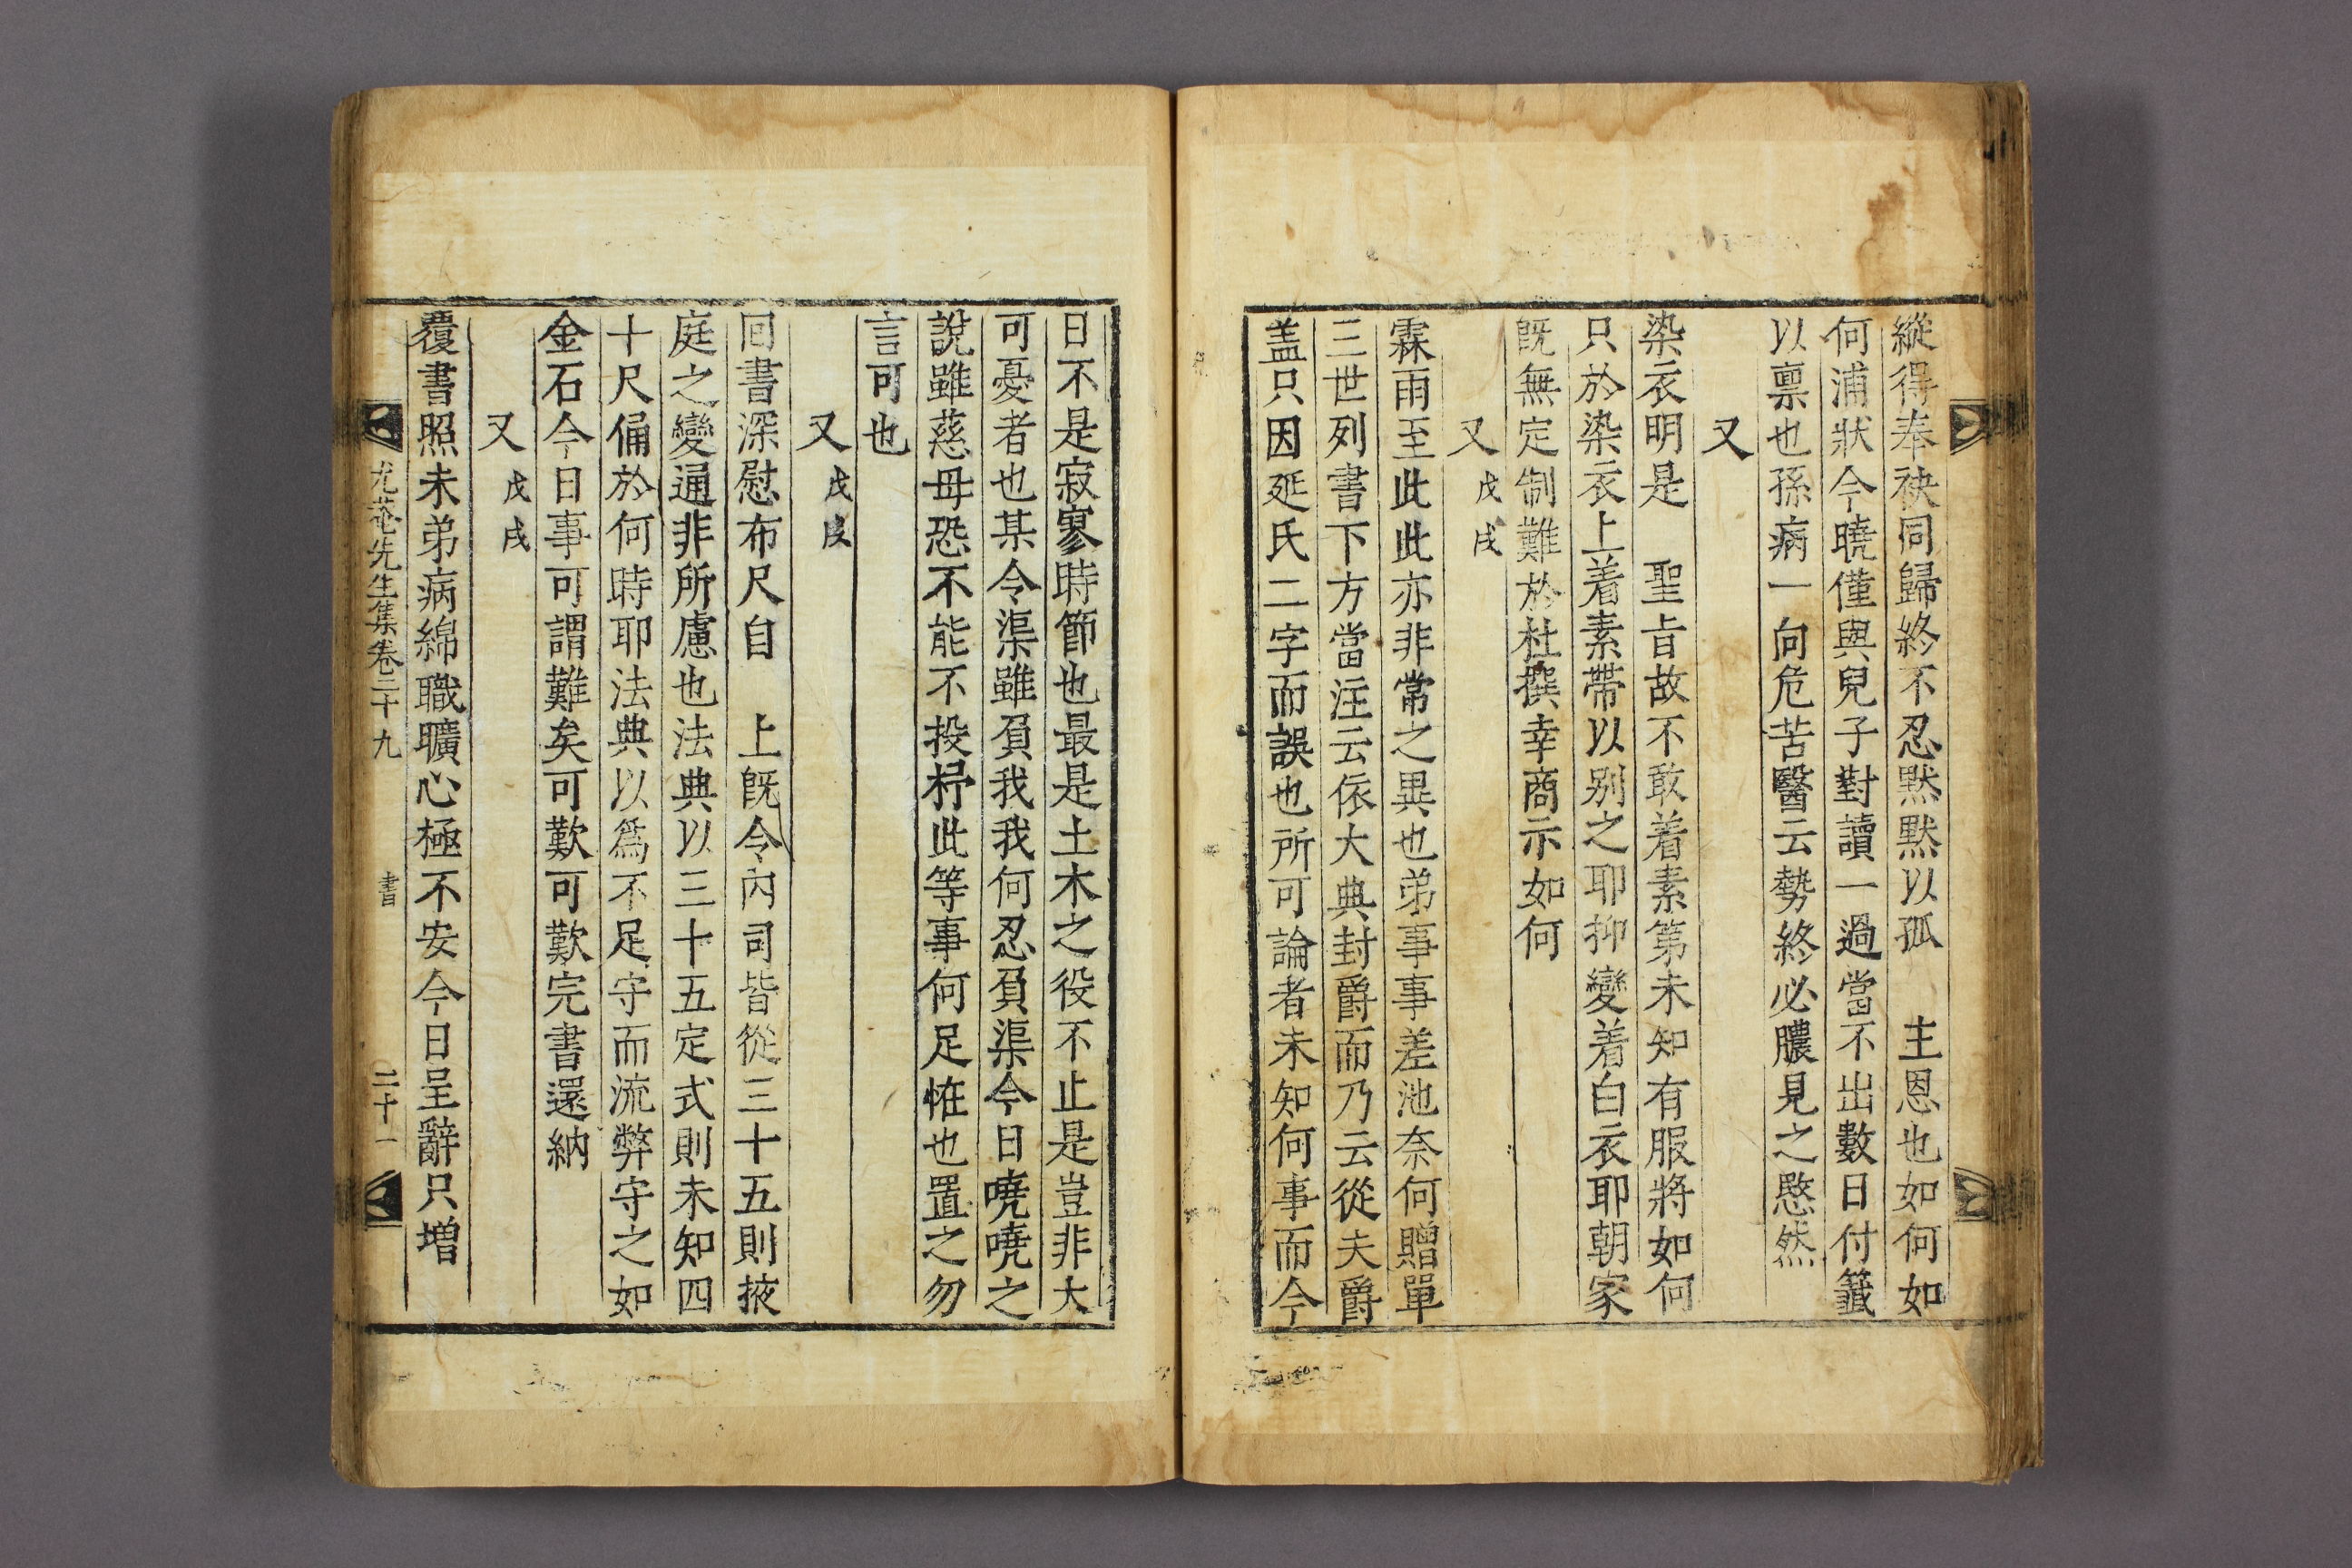 縱得奉袂同歸終不忍黙黙以孤　主恩也如何如
何浦狀今曉僅與兒子對讀一過當不出數日付籤
以禀也孫病一向危苦醫云勢終必膿見之愍然
又
染衣明是　聖旨故不敢着素第未知有服將如何
只於染衣上着素帶以別之耶抑變着白衣耶朝家
旣無定制難於杜撰幸商示如何
又 戊戌
霖雨至此此亦非常之異也弟事事差池奈何贈單
三世列書下方當注云依大典封爵而乃云從夫爵
盖只因延氏二字而誤也所可論者未知何事而今
日不是寂寥時節也最是土木之役不止是豈非大
可憂者也某令渠雖負我我何忍負渠今日嘵嘵之
說雖慈母恐不能不投杼此等事何足恠也置之勿
言可也
又 戊戌
回書深慰布尺自　上旣令內司皆從三十五則掖
庭之變通非所慮也法典以三十五定式則未知四
十尺俑於何時耶法典以爲不足守而流弊守之如
金石今日事可謂難矣可歎可歎完書還納
又 戊戌
覆書照未弟病綿職曠心極不安今日呈辭只增
尤菴先生集卷二十九　書　二十一